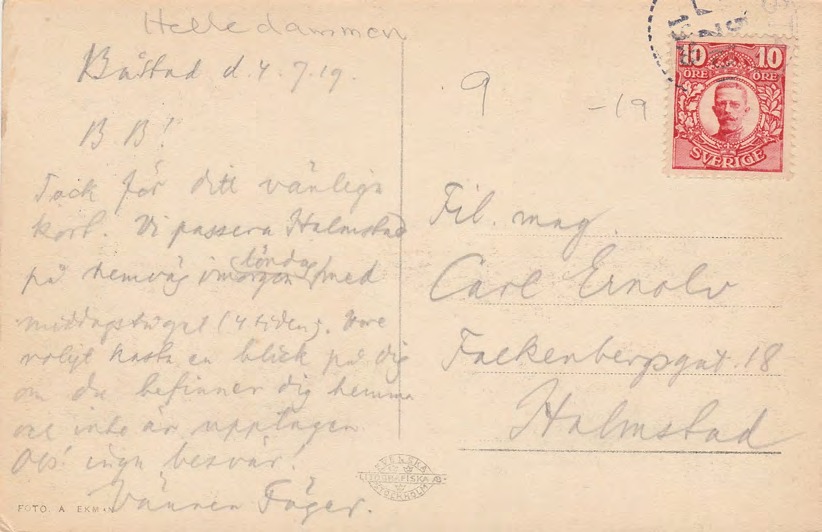 Helledammen
Båstad d. 4.7.19.
B B!
Tack för ditt vänliga
kort. Vi passera Halmstad
på hemväg imorgon lördag med
middagståget (4 tiden). Vore
roligt kasta en blick på dig
om du befinner dig hemma
och inte är upptagen.
Obs! inga besvär!
Vännen Fäger.
FOTO. A. EKMAN
9
-19
10 10
ÖRE ÖRE
SVERIGE
Fil. mag.
Carl Ernolv
Falkenbergsgat. 18
Halmstad
SVENSKA
LITOGRAFISKA AB
STOCKHOLM